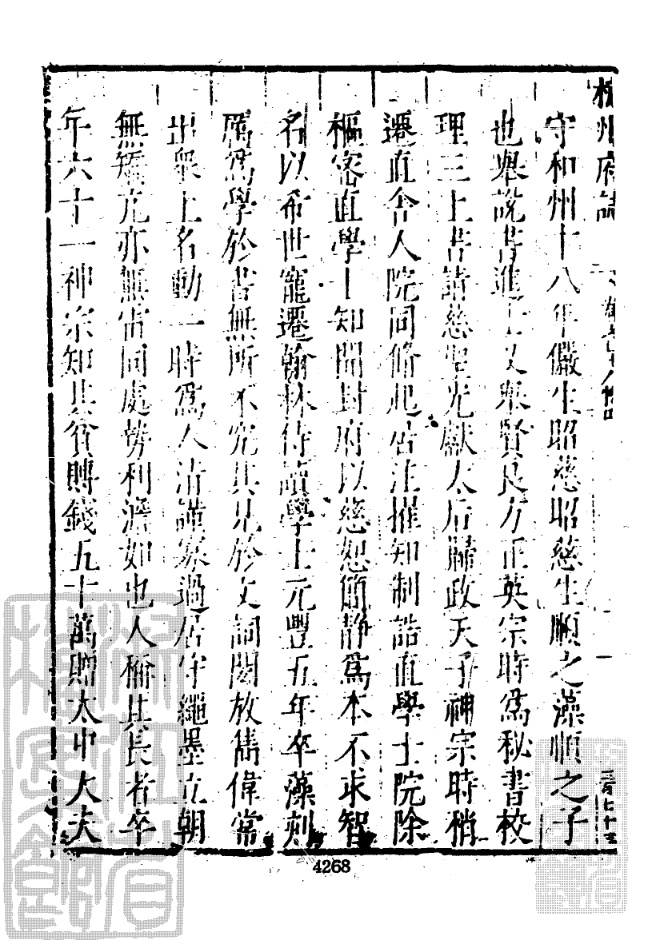 杭州府誌
守和州十八年儼生昭慈昭慈生順之藻順之子
也舉說書進士又舉賢良方正英宗時爲秘書校
理三上書請慈聖光獻太后歸政天子神宗時稍
遷直舍人院同脩起居注擢知制誥直學士院除
樞密直學士知開封府以慈恕簡靜爲本不求智
名以希世寵遷翰林侍讀學士元豐五年卒藻刻
厲爲學於書無所不究其見於文詞閎放雋偉常
出衆上名動一時爲人清謹寡過居守繩墨立朝
無矯亢亦無雷同處勢利澹如也人稱其長者卒
年六十一神宗知其貧賻錢五十萬贈太中大夫
4268